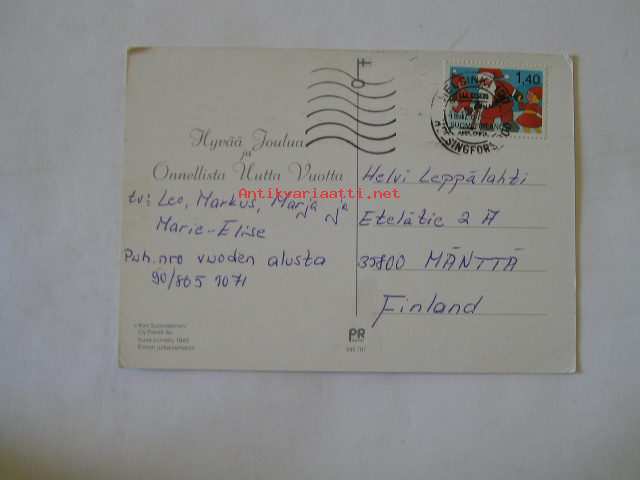 Hyvää Joulua
ja
Onnellista Uutta Vuotta
Antikvariaatti.net
tv: Leo, Markus, Marja ja
Marie-Elise
Puh.nro vuoden alusta
90/865 1071
Helvi Leppälahti
Etelätie 2 A
35800 MÄNTTÄ
Finland
1,40
HELSINKI
HELSINGFORS
Oy
PR